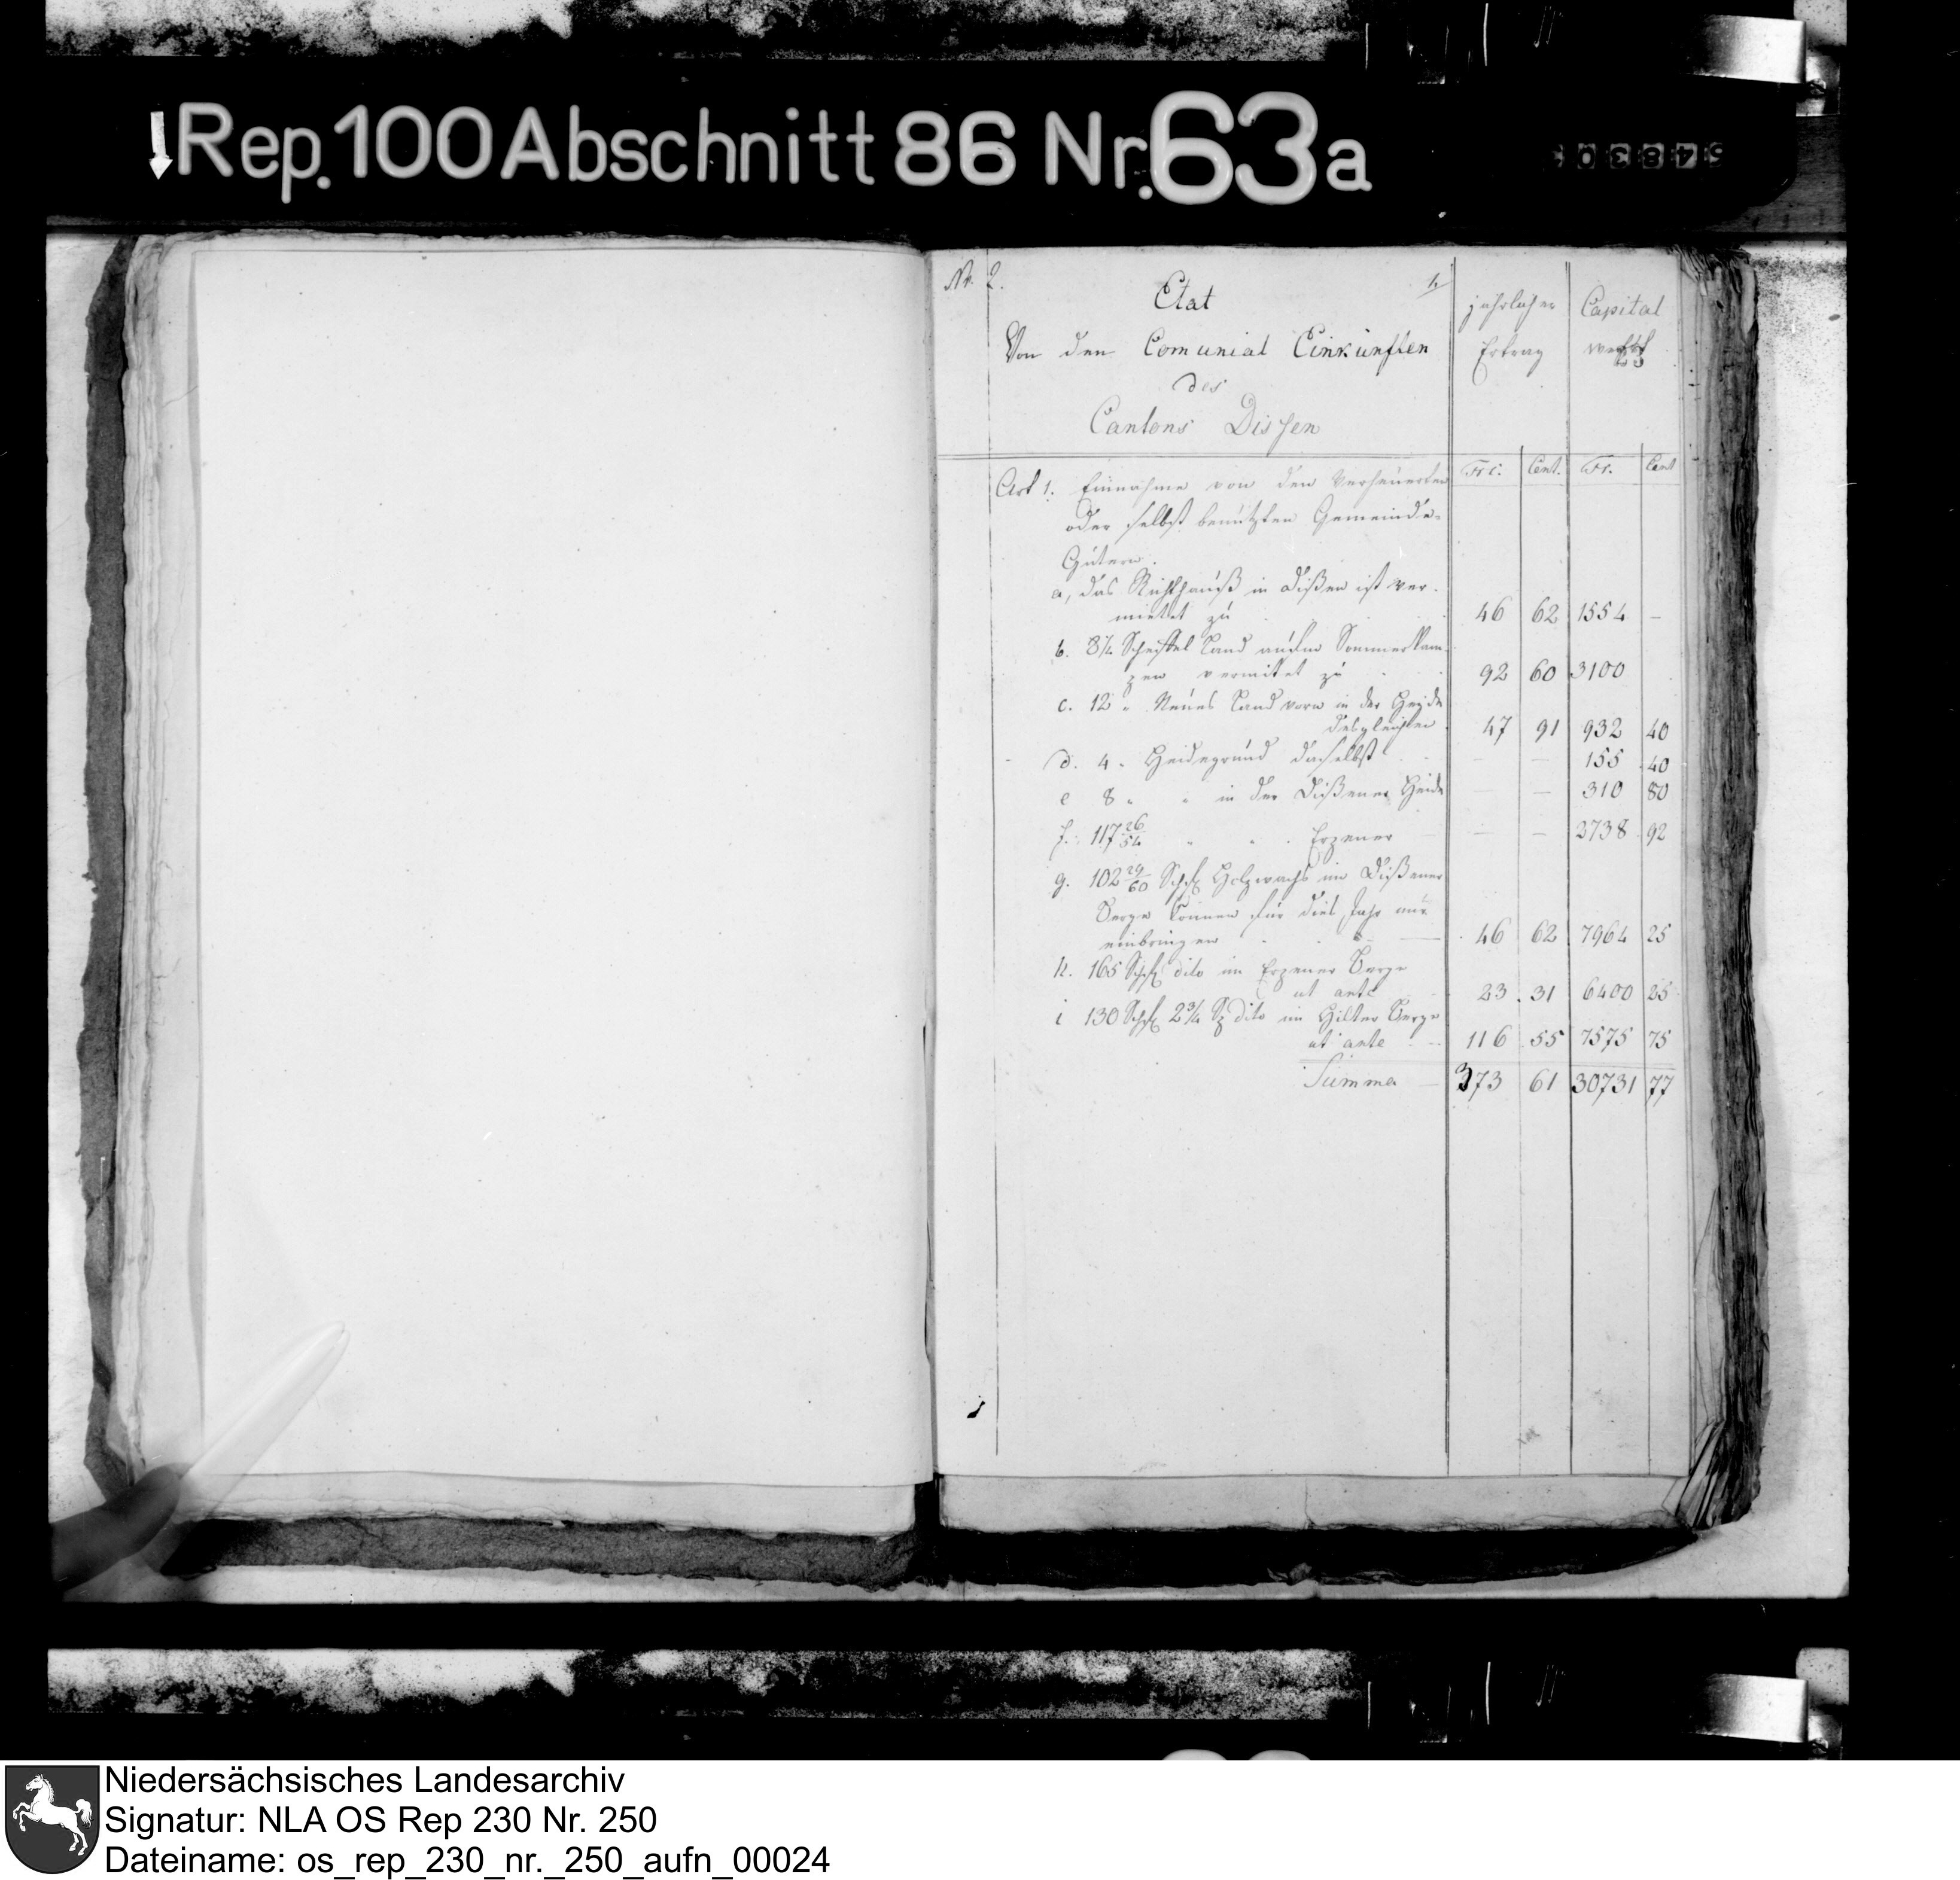 Rep. 100 Abschnitt 86 Nr. 63 a
54830
Nr. 2.
Etat
Von den Comunial Einkünften
des
Cantons Dissen
jährlicher Ertrag
Capital werth
Frc. Cent. Fr. Cent
Art 1. Einnahme von den verheuerten
oder selbst benützten Gemeinde-
Gütern.
a, das Richthauß in Dißen ist ver-
mietet zu 46 62 1554 —
b. 8½ Scheffel Land auf'm
vermietet zu 92 60 3100
c. 12 " Neues Land vorn in der Heyde
desgleichen 47 91 932 40
d. 4 " Heidegrund daselbst — — 155 40
e 8 " " in der Dißener Heide — — 310 80
f. 117 26/54 " " " Erpener — — 2738 92
g. 102 29/60 Schfl Holzwachs im Dißener
Berge können für dies Jahr nur
einbringen 46 62 7964 25
h. 165 Schfl dito im Erpener Berge
ut ante 23 31 6400 25
i 130 Schfl 2¾ Sp dito im Hilter Berge
ut ante 116 55 7575 75
Summa — 373 61 30731 77
Niedersächsisches Landesarchiv
Signatur: NLA OS Rep 230 Nr. 250
Dateiname: os_rep_230_nr._250_aufn_00024